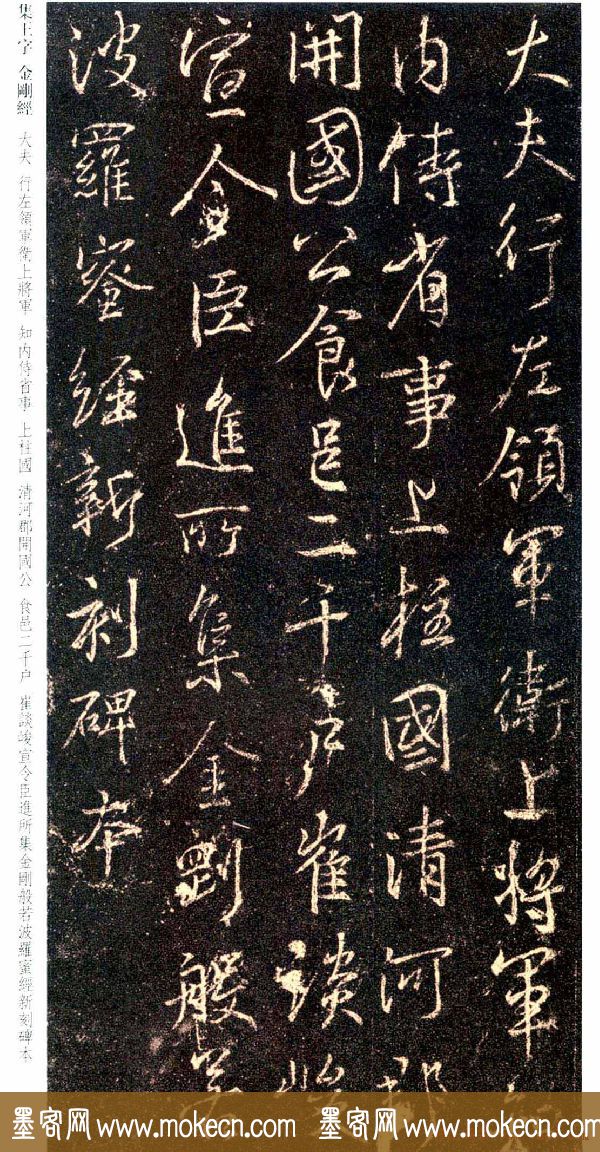 大夫行左領軍衛上將軍知
內侍省事上柱國清河郡
開國公食邑二千戶崔談峻
宣令臣進所集金剛般若
波羅蜜經新刻碑本
集王字 金剛經 大夫 行左領軍衛上將軍 知內侍省事 上柱國 清河郡開國公 食邑二千户 崔談峻宣令臣進所集金剛般若波羅蜜經新刻碑本
墨客网 www.mokecn.com 墨客网 www.mokecn.com